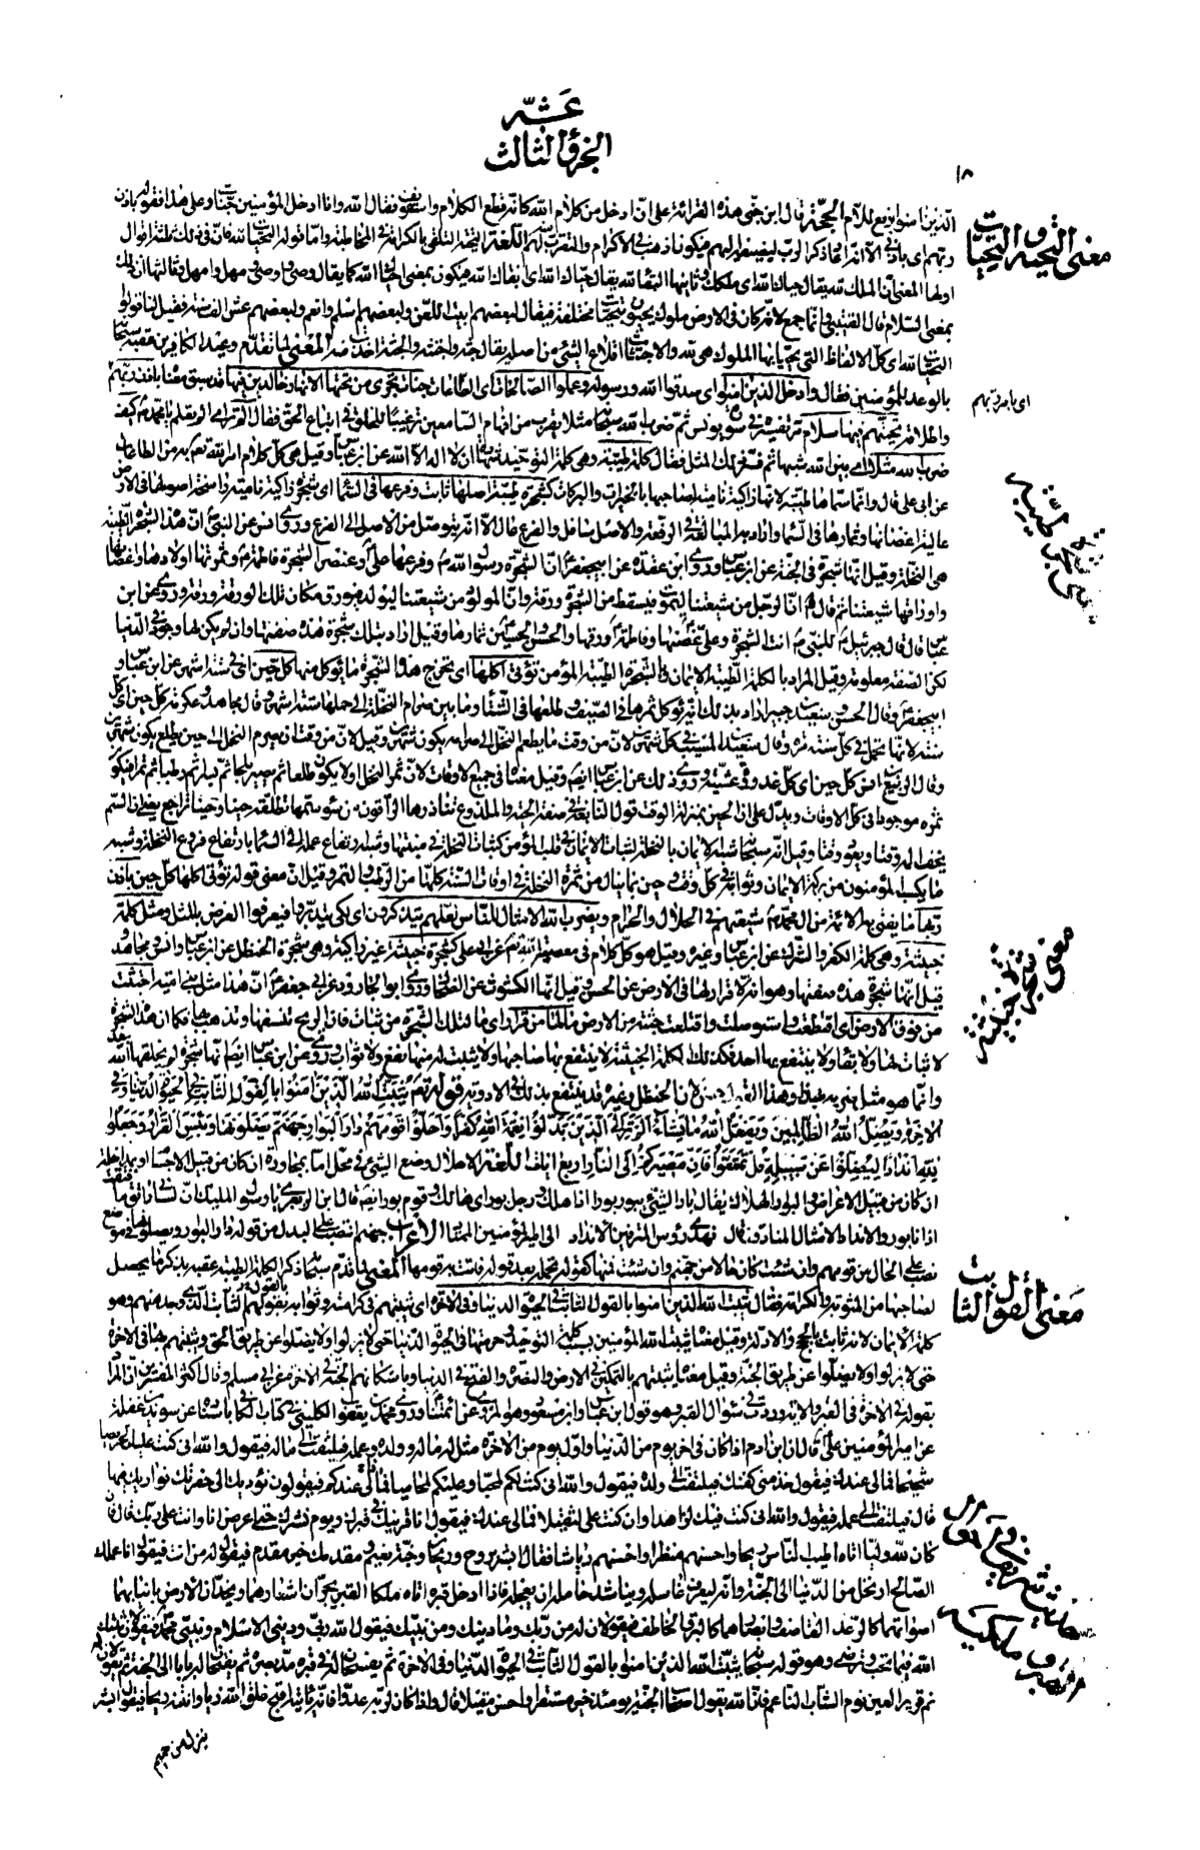 عشر
الجزؤ الثالث
١٨
الذين امنوا برفع اللام الحجة قال ابن جنى هذه القرائة على ان ادخل من كلام الله كانه قطع الكلام واستؤنف فقال الله وانا ادخل المؤمنين جنات وعلى هذا فقوله باذن
ربهم اى باذنى الا انه اعاد ذكر الرب ليضيفه اليهم فيكون اذهب فى الاكرام والتقريب لهم اللغة التحية التلقى بالكرامة فى المخاطبة واما قوله التحيات لله فان فى ذلك ثلثة اقوال
اولها المعنى ان الملك لله يقال حياك الله اى ملكك وثانيها البقاء لله يقال حياك الله اى ابقاك الله فيكون بمعنى احياك الله كما يقال وصى واوصى ومهل وامهل وثالثها ان ذلك
بمعنى السلام قال القتيبى وانما جمع لانه كان فى الارض ملوك يحيون بتحيات مختلفة فيقال لبعضهم ابيت اللعن ولبعضهم اسلم وانعم ولبعضهم عش الف سنة فقيل لنا قولوا
التحيات لله اى كل الالفاظ التى يحيا بها الملوك هى لله والاجتثاث اقتلاع الشىء من اصله يقال جثه واجتثه والجثة اخذت منه المعنى لما تقدم وعيد الكافرين عقبه سبحانه
بالوعد للمؤمنين فقال وادخل الذين امنوا اى صدقوا الله ورسوله وعملوا الصالحات اى الطاعات جنات تجرى من تحتها الانهار خالدين فيها قد سبق معناه باذن ربهم
واطلاقه تحيتهم فيها سلام مر تفسيره فى سورة يونس ثم ضرب الله سبحانه مثلا يقرب من افهام السامعين ترغيبا للخلق فى اتباع الحق فقال الم تر اى الم تعلم يا محمد كيف
ضرب الله مثلا اى بين الله شبها ثم فسر ذلك المثل فقال كلمة طيبة وهى كلمة التوحيد شهادة ان لا اله الا الله عن ابن عباس وقيل هى كل كلام امر الله تعالى به من الطاعات
عن ابى على قال وانما سماها طيبة لانها زاكية نامية لصاحبها بالخيرات والبركات كشجرة طيبة اصلها ثابت وفرعها فى السماء اى شجرة زاكية نامية راسخة اصولها فى الارض
عالية اغصانها وثمارها فى السماء واراد به المبالغة فى الرفعة والاصل سافل والفرع عال الا انه يتوصل من الاصل الى الفرع وروى انس عن النبى ان هذه الشجرة الطيبة
هى النخلة وقيل انها شجرة فى الجنة عن ابن عباس وروى ابن عقدة عن ابى جعفر ان الشجرة رسول الله وفرعها على وعنصر الشجرة فاطمة وثمرتها اولادها واغصانها
واوراقها شيعتنا ثم قال ان الرجل من شيعتنا ليموت فيسقط من الشجرة ورقة وان المولود من شيعتنا ليولد فيورق مكان تلك الورقة ورقة وروى عن ابن
عباس قال قال جبرئيل للنبى انت الشجرة وعلى غصنها وفاطمة ورقها والحسن والحسين ثمارها وقيل اراد بذلك شجرة هذه صفتها وان لم يكن لها وجود فى الدنيا
لكن الصفة معلومة وقيل المراد بالكلمة الطيبة الايمان وبالشجرة الطيبة المؤمن تؤتى اكلها اى تخرج هذه الشجرة ما يؤكل منها كل حين اى فى ستة اشهر عن ابن عباس و
ابى جعفر وقال الحسن وسعيد بن جبير اراد بذلك انه يؤكل ثمرها فى الصيف وطلعها فى الشتاء وما بين صرام النخلة الى حملها ستة اشهر وقال مجاهد وعكرمة كل حين اى كل
سنة لانها تحمل فى كل سنة مرة وقال سعيد بن المسيب فى كل شهرين لان من وقت ما يطعم النخل الى صرامه يكون شهرين وقيل لان من وقت ان يصرم النخل الى حين يطلع يكون شهرين
وقال الربيع بن انس كل حين اى كل غدوة وعشية وروى ذلك عن ابن عباس ايضا وقيل معناه فى جميع الاوقات لان ثمر النخل اولا يكون طلعا ثم يصير بلحا ثم بسرا ثم رطبا ثم تمرا فيكون
ثمره موجودا فى كل الاوقات ويدل على ان الحين بمنزلة الوقت قول النابغة فى صفة الحية والملدوغ تناذرها الراقون من سوء سمها تطلقه حينا وحينا تراجع يعنى ان السم
يخف المه وقتا ويعود وقتا وقيل انه سبحانه شبه الايمان بالنخلة لثبات الايمان فى قلب المؤمن كثبات النخلة فى منبتها وشبه ارتفاع عمله الى السماء بارتفاع فروع النخلة وشبه
ما يكسبه المؤمنون من بركة الايمان وثوابه فى كل وقت وحين بما ينال من ثمرة النخلة فى اوقات السنة كلها من الرطب والتمر وقيل ان معنى قوله تؤتى اكلها كل حين باذن
ربها ما يفتى به الائمة من ال محمد شيعتهم فى الحلال والحرام ويضرب الله الامثال للناس لعلهم يتذكرون اى لكى يتدبروا فيعرفوا الغرض بالمثل ومثل كلمة
خبيثة وهى كلمة الكفر والشرك عن ابن عباس وغيره وقيل هو كل كلام فى معصية الله تعالى عن ابى على كشجرة خبيثة غير زاكية وهى شجرة الحنظل عن ابن عباس وانس ومجاهد
وقيل انها شجرة هذه صفتها وهو انه لا قرار لها فى الارض عن الحسن وقيل انها الكشوث عن الضحاك وروى ابو الجارود عن ابى جعفر ان هذا مثل بنى امية اجتثت
من فوق الارض اى اقتطعت واستوصلت واقتلعت جثته من الارض ما لها من قرار اى ما لتلك الشجرة من ثبات فان الريح تنسفها وتذهب بها فكما ان هذه الشجرة
لا ثبات لها ولا بقاء ولا ينتفع بها احد فكذلك الكلمة الخبيثة لا ينتفع بها صاحبها ولا يثبت له منها نفع ولا ثواب وروى عن ابن عباس ايضا انها شجرة لم يخلقها الله
وانما هو مثل ضربه وهذا القول حسن لان الحنظل وغيره قد ينتفع بذلك فى الادوية قوله تعالى يثبت الله الذين امنوا بالقول الثابت فى الحيوة الدنيا وفى
الاخرة ويضل الله الظالمين ويفعل الله ما يشاء الم تر الى الذين بدلوا نعمة الله كفرا واحلوا قومهم دار البوار جهنم يصلونها وبئس القرار وجعلوا
لله اندادا ليضلوا عن سبيله قل تمتعوا فان مصيركم الى النار اربع ايات اللغة الاحلال وضع الشىء فى محل اما بمجاورة ان كان من قبيل الاجسام او بمداخلة
ان كان من قبيل الاعراض والبوار الهلاك يقال بار الشىء يبور بورا اذا هلك ورجل بور اى هالك وقوم بور ايضا قال ابن الزبعرى يا رسول المليك ان لسانى راتق ما فتقت
اذ انا بور والانداد الامثال المنادون قال تهدى رؤس المترفين الانداد الى امير المؤمنين الممتاد الاعراب جهنم نصب على البدل من قوله دار البوار ويصلونها فى موضع
نصب على الحال من قومهم وان شئت كان حالا من جهنم وان شئت منهما كقوله تحمله بعد قوله فاتت به قومها المعنى لما تقدم سبحانه ذكر الكلمة الطيبة عقبه بذكر ما يحصل
لصاحبها من المثوبة والكرامة فقال يثبت الله الذين امنوا بالقول الثابت فى الحيوة الدنيا وفى الاخرة اى يثبتهم فى كرامته وثوابه بقولهم القول الثابت الذى وجد منهم وهو
كلمة الايمان لانه ثابت بالحجج والادلة وقيل معناه يثبت الله المؤمنين بسبب كلمة التوحيد وحرمتها فى الحيوة الدنيا حتى لا يزلوا ولا يضلوا عن طريق الحق ويثبتهم بها فى الاخرة
حتى لا يزلوا ولا يضلوا عن طريق الجنة وقيل معناه يثبتهم بالتمكين فى الارض والنصرة والفتح فى الدنيا وباسكانهم الجنة فى الاخرة عن ابى مسلم وقال اكثر المفسرين ان المراد
بقوله فى الاخرة فى القبر والاية وردت فى سؤال القبر وهو قول ابن عباس وابن مسعود وهو المروى عن ائمتنا وروى محمد بن يعقوب الكلينى فى كتاب الكافى باسناده عن سويد بن غفلة
عن امير المؤمنين على قال ان ابن ادم اذا كان فى اخر يوم من الدنيا واول يوم من الاخرة مثل له ماله وولده وعمله فيلتفت الى ماله فيقول والله انى كنت عليك لحريصا
شحيحا فما لى عندك فيقول خذ منى كفنك فيلتفت الى ولده فيقول والله انى كنت لكم لمحبا وعليكم لمحاميا فما لى عندكم فيقولون نؤديك الى حفرتك نواريك فيها
قال فيلتفت الى عمله فيقول والله انى كنت فيك لزاهدا وان كنت على لثقيلا فما لى عندك فيقول انا قرينك فى قبرك ويوم نشرك حتى اعرض انا وانت على ربك قال فان
كان لله وليا اتاه اطيب الناس ريحا واحسنهم منظرا واحسنهم رياشا فقال ابشر بروح وريحان وجنة نعيم ومقدمك خير مقدم فيقول له من انت فيقول انا عملك
الصالح ارتحل من الدنيا الى الجنة وانه ليعرف غاسله ويناشد حامله ان يعجله فاذا ادخل قبره اتاه ملكا القبر يجران اشعارهما ويخدان الارض بانيابهما
اصواتهما كالرعد القاصف وابصارهما كالبرق الخاطف فيقولان له من ربك وما دينك ومن نبيك فيقول الله ربى ودينى الاسلام ونبيى محمد فيقولان ثبتك
الله فيما تحب وترضى وهو قوله سبحانه يثبت الله الذين امنوا بالقول الثابت فى الحيوة الدنيا وفى الاخرة ثم يفسحان له فى قبره مد بصره ثم يفتحان له بابا الى الجنة ثم يقولان له
نم قرير العين نوم الشاب الناعم فان الله يقول اصحاب الجنة يومئذ خير مستقرا واحسن مقيلا قال واذا كان لربه عدوا فانه ياتيه اقبح خلق الله زيا وانتنه ريحا فيقول ابشر
بنزل من حميم
معنى التحية والتحيات
اى بامر ربهم
معنى شجرة خبيثة
معنى القول الثابت